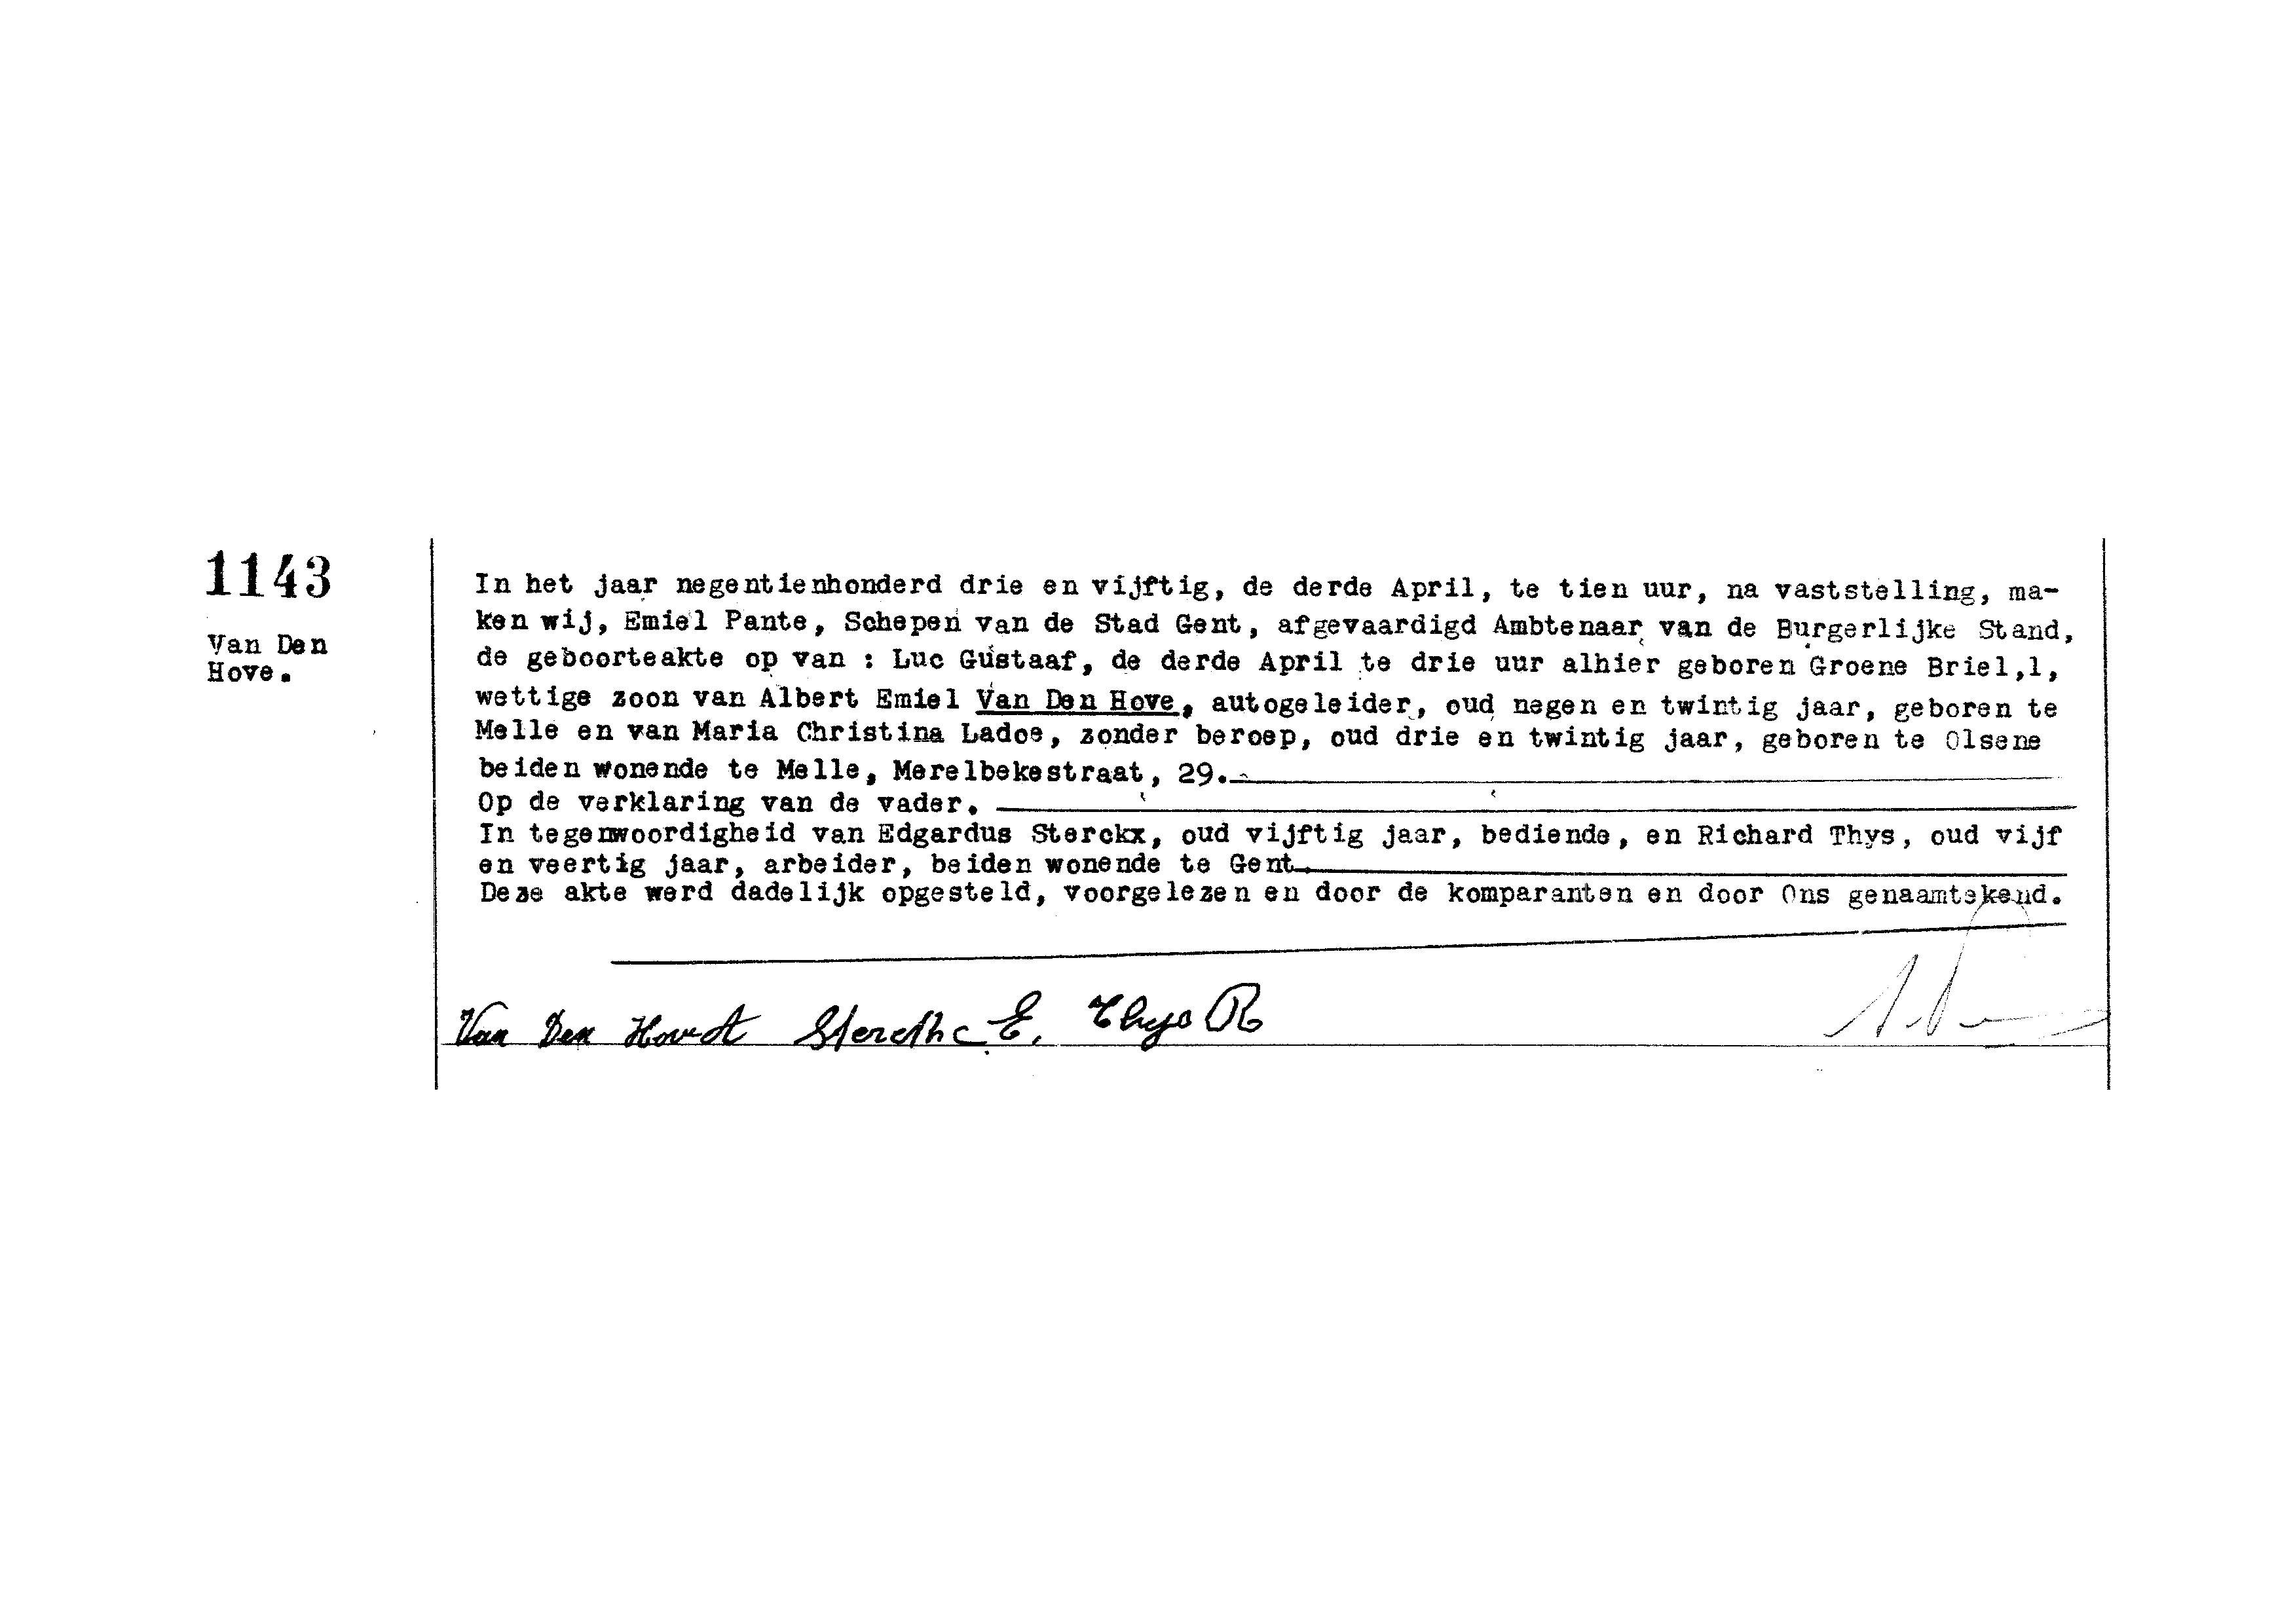 1143
Van Den
Hove.
In het jaar negentienhonderd drie en vijftig, de derde April, te tien uur, na vaststelling, ma-
ken wij, Emiel Pante, Schepen van de Stad Gent, afgevaardigd Ambtenaar van de Burgerlijke Stand,
de geboorteakte op van : Luc Gustaaf, de derde April te drie uur alhier geboren Groene Briel,1,
wettige zoon van Albert Emiel Van Den Hove, autogeleider, oud negen en twintig jaar, geboren te
Melle en van Maria Christina Ladoe, zonder beroep, oud drie en twintig jaar, geboren te Olsene
beiden wonende te Melle, Merelbekestraat, 29.
Op de verklaring van de vader.
In tegenwoordigheid van Edgardus Sterckx, oud vijftig jaar, bediende, en Richard Thys, oud vijf
en veertig jaar, arbeider, beiden wonende te Gent.
Deze akte werd dadelijk opgesteld, voorgelezen en door de komparanten en door Ons genaamtekend.
Van Den Hove A E. Thys R